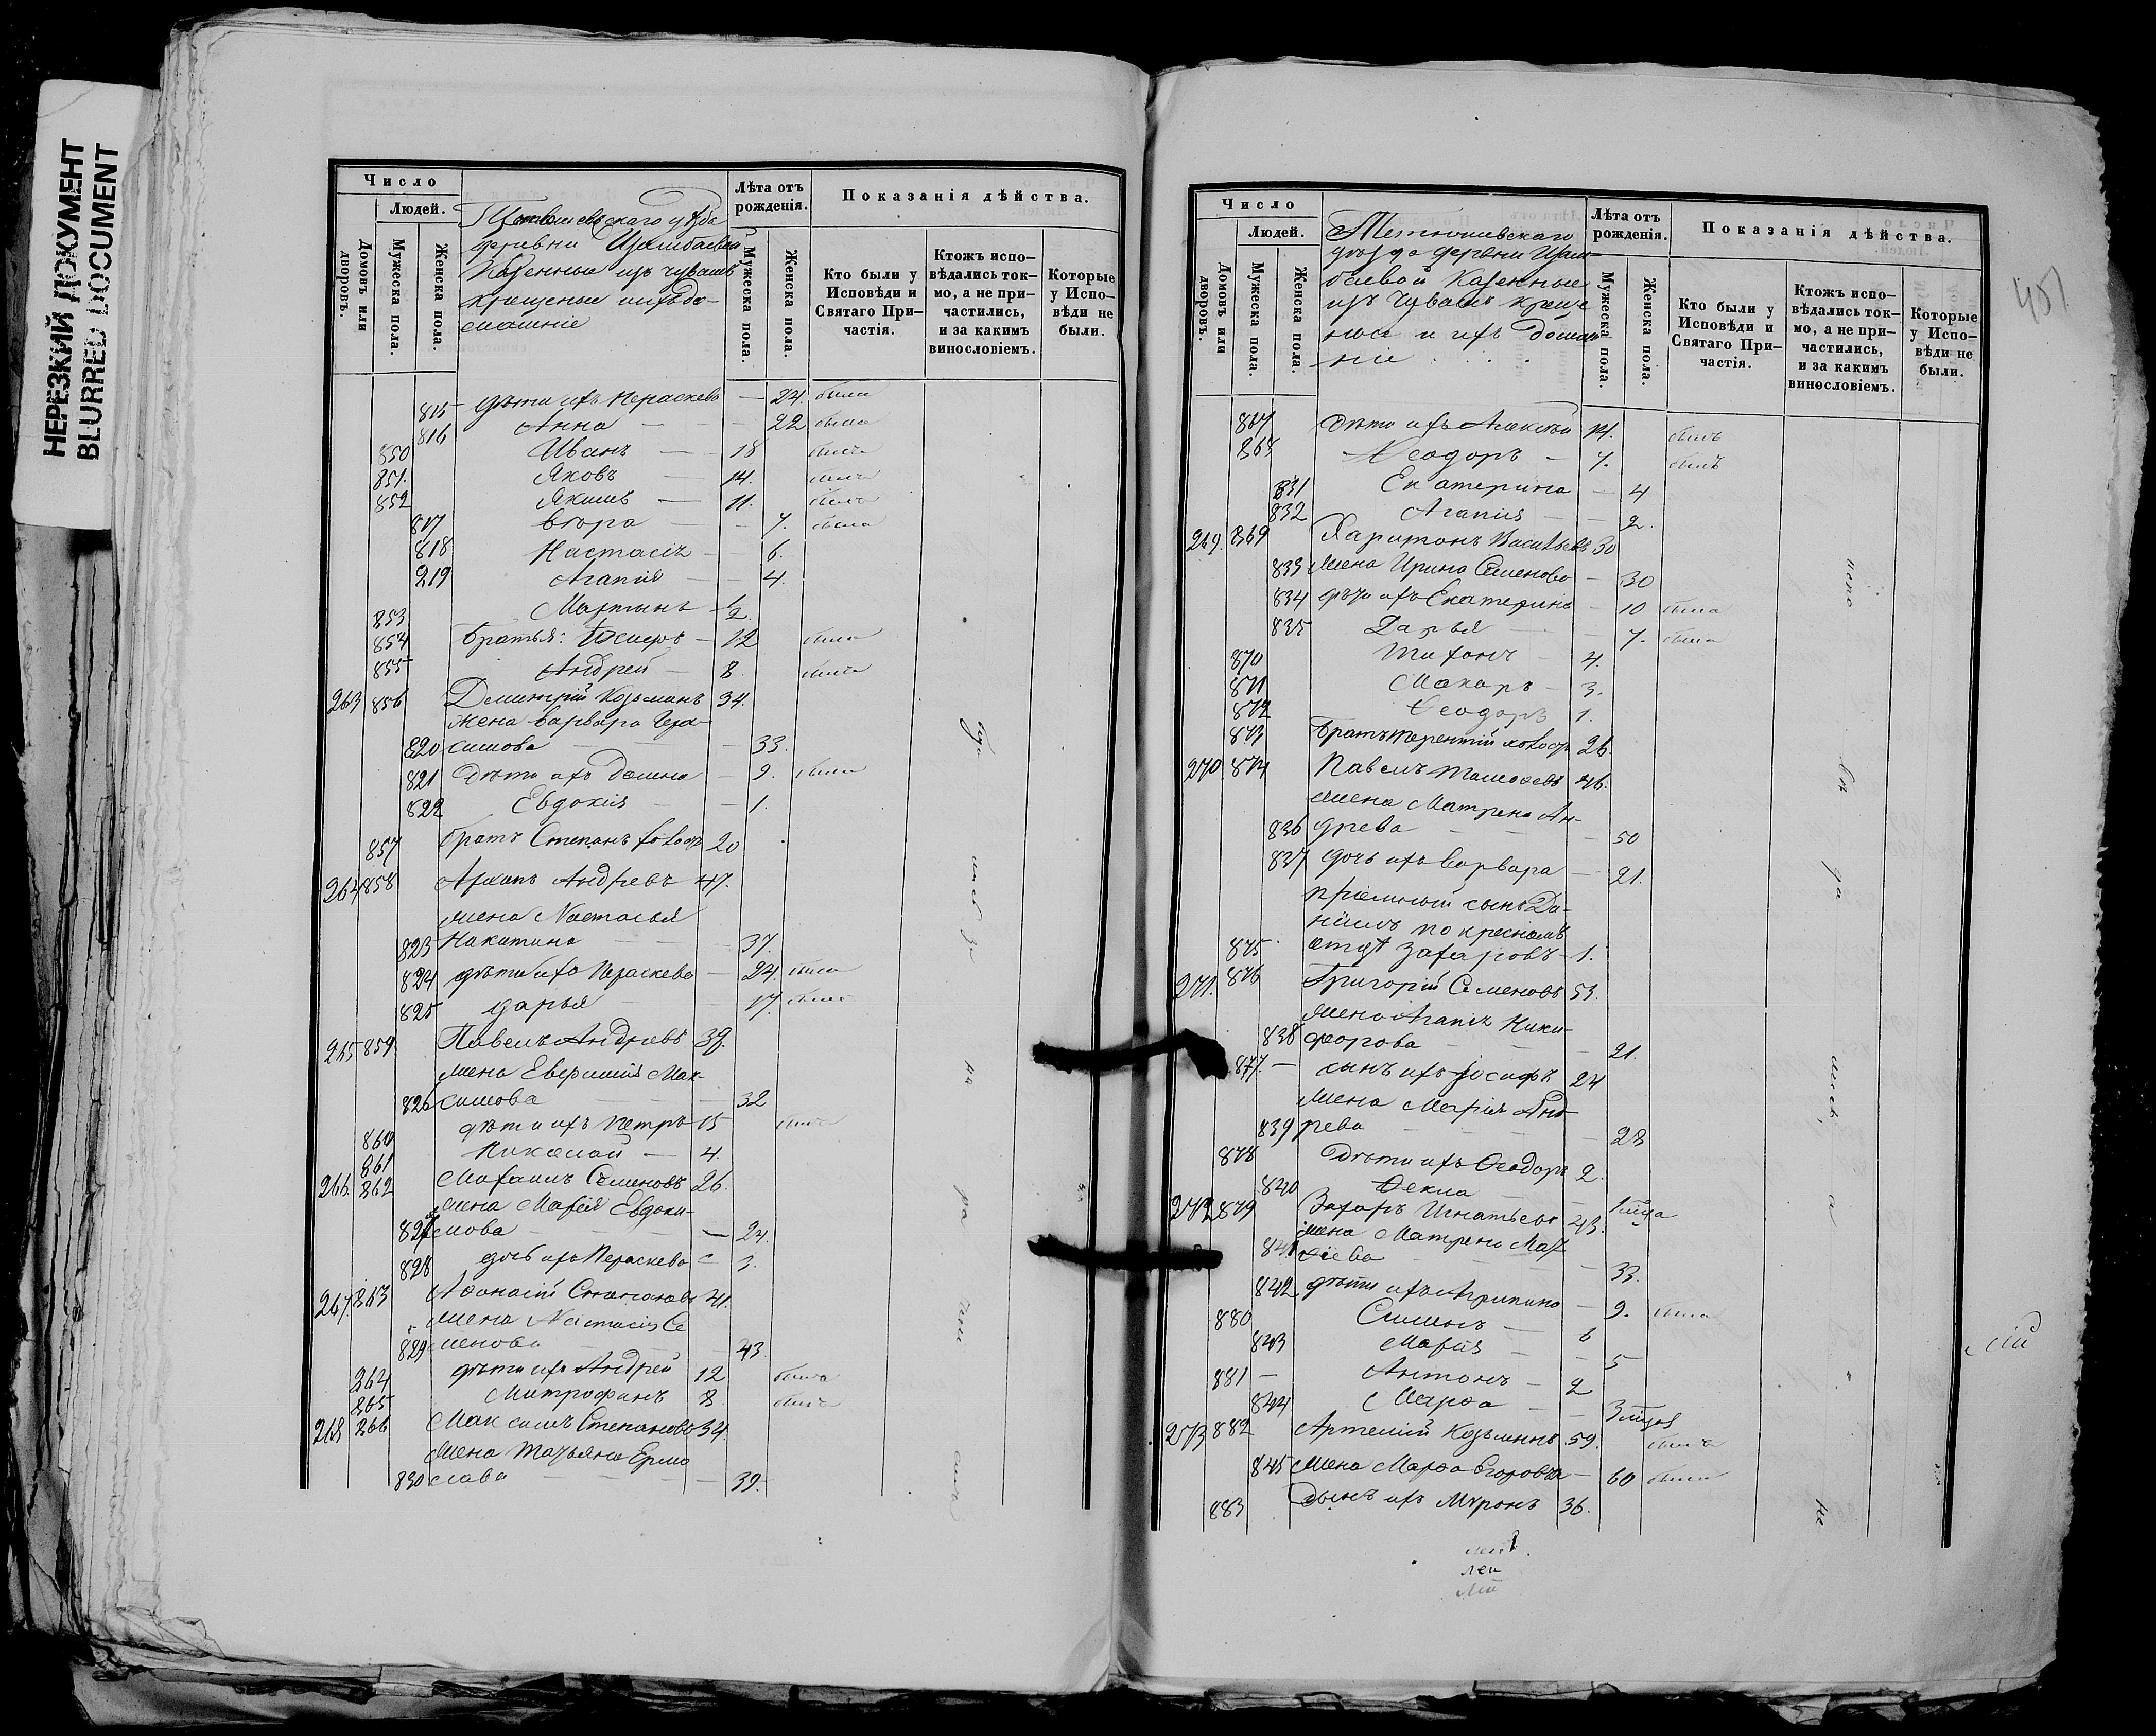 НЕРЕЗКИЙ ДОКУМЕНТ
BLURRED DOCUMENT
Число
Людей.
Домовъ или дворовъ.
Мужеска пола.
Женска пола.
уѣзда
деревни
Казенные изъ чувашъ
крещеные и ихъ до-
машніе
Лѣта отъ рожденія.
Мужеска пола.
Женска пола.
Показанія дѣйства.
Кто были у Исповѣди и Святаго При-частія.
Ктожъ испо-вѣдались ток-мо, а не при-частились, и за какимъ винословіемъ.
Которые у Испо-вѣди не были.
815 дѣти ихъ Параскева — 24. была
816 Анна — 22 была
850 Иванъ — 18 былъ
851. Яковъ 14. былъ
852 Якимъ — 11. былъ
817 Вѣра — 7. была
818 Настасія — 6.
219 Агапія — 4.
853 Мартынъ 1/2.
854 Братья: Іосифъ — 12 былъ
855 Андрей — 8. былъ
263 856 Димитрій Козьминъ 34.
жена Варвара Гера-
820 симова — 33.
821 Дѣти ихъ Домна — 9. была
822 Евдокія — 1.
857 братъ Степанъ холост 20
264 858 Архипъ Андреевъ 47.
жена Настасья
823 Никитина — 37.
824 дѣти ихъ Параскева — 24 была
825 Дарья 17. была
265 859 Павелъ Андреевъ 39.
жена Евфимія Мак-
826 симова — 32
860 дѣти ихъ Петръ 15 былъ
861 Николай — 4.
266. 862 Семеновъ 26.
жена Марія Евдоки-
827 мова — 24.
828 дочь ихъ Параскева 3.
267. 863 Аѳонасій Степановъ 41.
жена Настасія Се
829 менова — 43.
264 дѣти ихъ Андрей 12 былъ
865 Митрофанъ 8. былъ
268 866 Максимъ Степановъ 34
жена Татьяна Ермо
830 лаева — 39.
Число
Людей.
Домовъ или дворовъ.
Мужеска пола.
Женска пола.
Тетюшевскаго
уѣзда деревни
Казенные
изъ Чувашъ креще
ные и ихъ домаш-
ніе . . .
Лѣта отъ рожденія.
Мужеска пола.
Женска пола.
Показанія дѣйства.
Кто были у Исповѣди и Святаго При-частія.
Ктожъ испо-вѣдались ток-мо, а не при-частились, и за какимъ винословіемъ.
Которые у Испо-вѣди не были.
867 дѣти ихъ Алексѣй 14. былъ
868 Ѳеодоръ — 7. былъ
831 Екатерина — 4
832 Агапія — 2.
269. 869 Харитонъ Васильевъ 30
833 жена Ирина Семенова — 30
834 дѣти ихъ Екатерина — 10 была
835 Дарья — 7. была
870 Тихонъ 4.
871 Макаръ — 3.
872 Ѳеодоръ 1.
873 братъ Терентій холост 26.
270 874 Павелъ Тимоѳеевъ 46.
жена Матрена Ан-
836 дреева — 50
837 дочь ихъ Варвара — 21.
пріемный сынъ Да-
ніилъ по крестномъ
875 отцѣ Захаровъ — 1.
271. 876 Григорій Семеновъ 53.
жена Агапія Ники-
838 форова — 21.
877. — сынъ ихъ Іосифъ 24
жена Марія Анд-
839 реева — 23
878 Дѣти ихъ Ѳеодоръ 2.
840 Ѳекла
272 879 Захаръ Игнатьевъ 43.
жена Матрена Мат
841 ѳеева — 33.
842 дѣти ихъ Агрипина — 9. была
880 Симонъ — 6
843 Марія — 5
881 — Антонъ — 2
844 Марѳа —
273 882 Артемій Козьминъ 59. былъ
845 жена Марѳа Егорова — 60 была
883 Сынъ ихъ Миронъ 36.